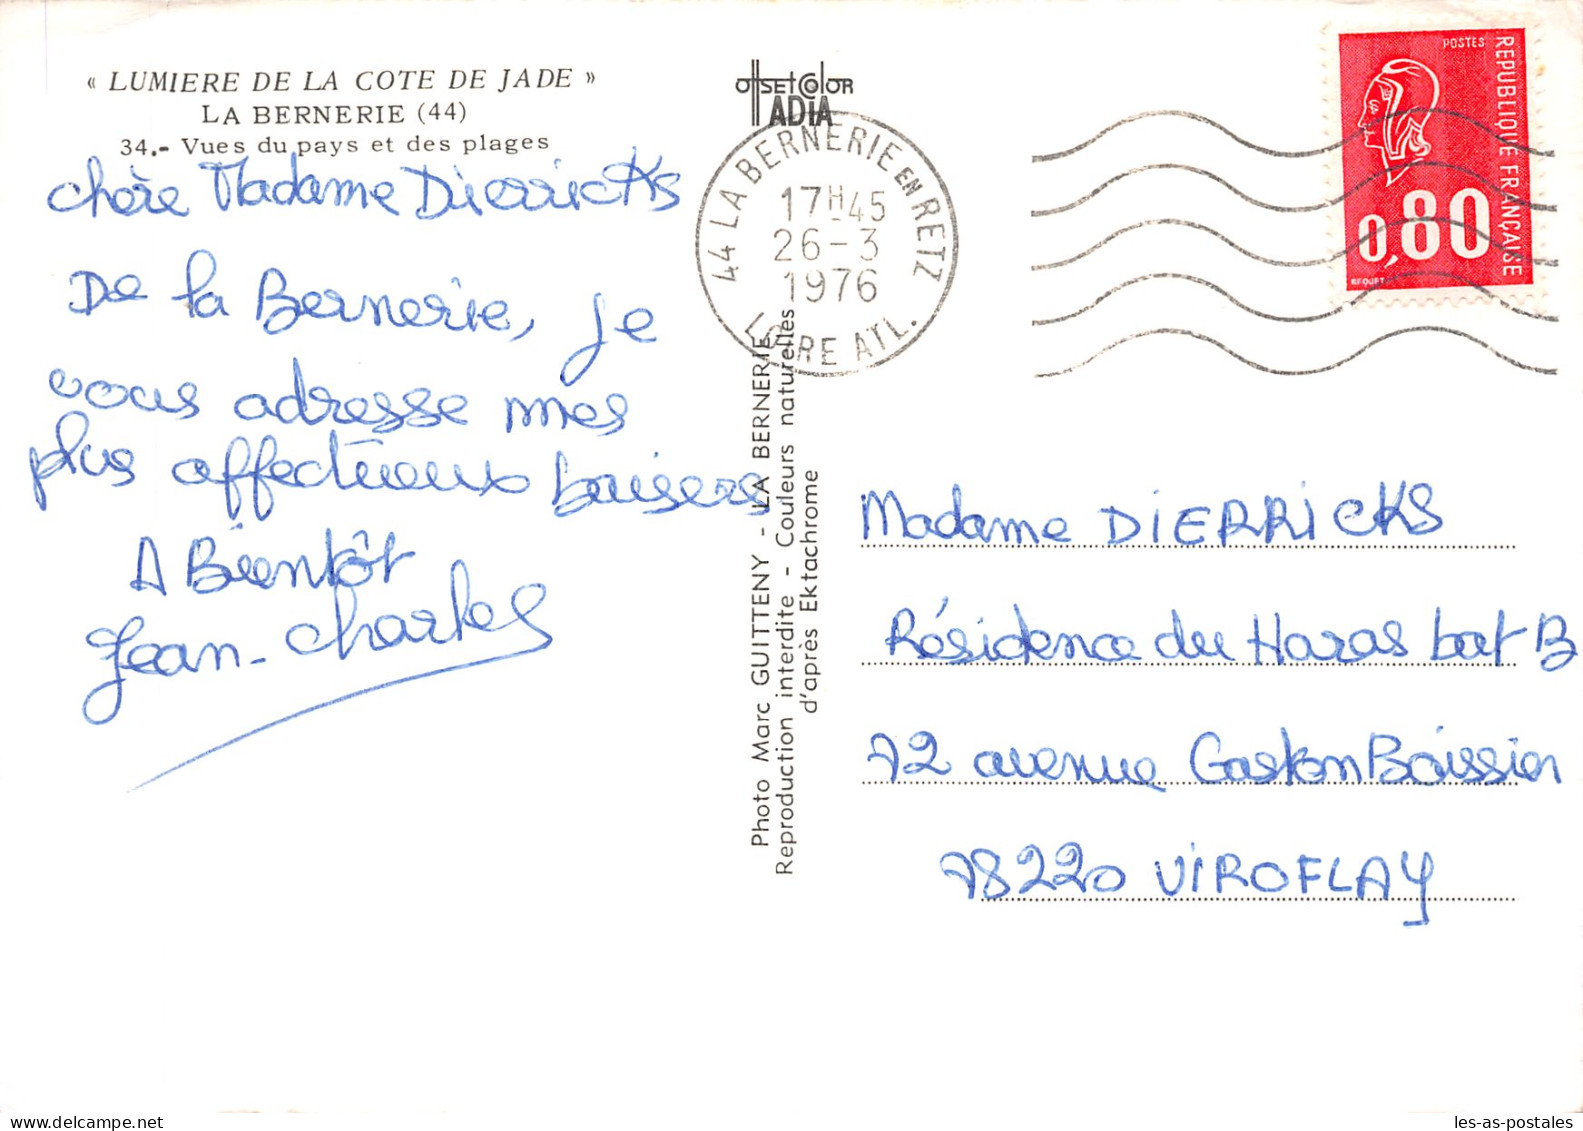 « LUMIERE DE LA COTE DE JADE »
LA BERNERIE (44)
34.- Vues du pays et des plages
chère Madame Dierricks
De la Bernerie, je
vous adresse mes
plus affectueux baisers
A Bientôt
Jean-Charles
OffsetColor
ADIA
44 LA BERNERIE EN RETZ
17H45
26-3
1976
LOIRE ATL.
Photo Marc GUITTENY - LA BERNERIE
Reproduction interdite - Couleurs naturelles
d'après Ektachrome
POSTES
REPUBLIQUE FRANÇAISE
0,80
BEQUET
Madame DIERRICKS
Résidence du Haras bat B
72 avenue Gaston Boissier
78220 VIROFLAY
les-as-postales